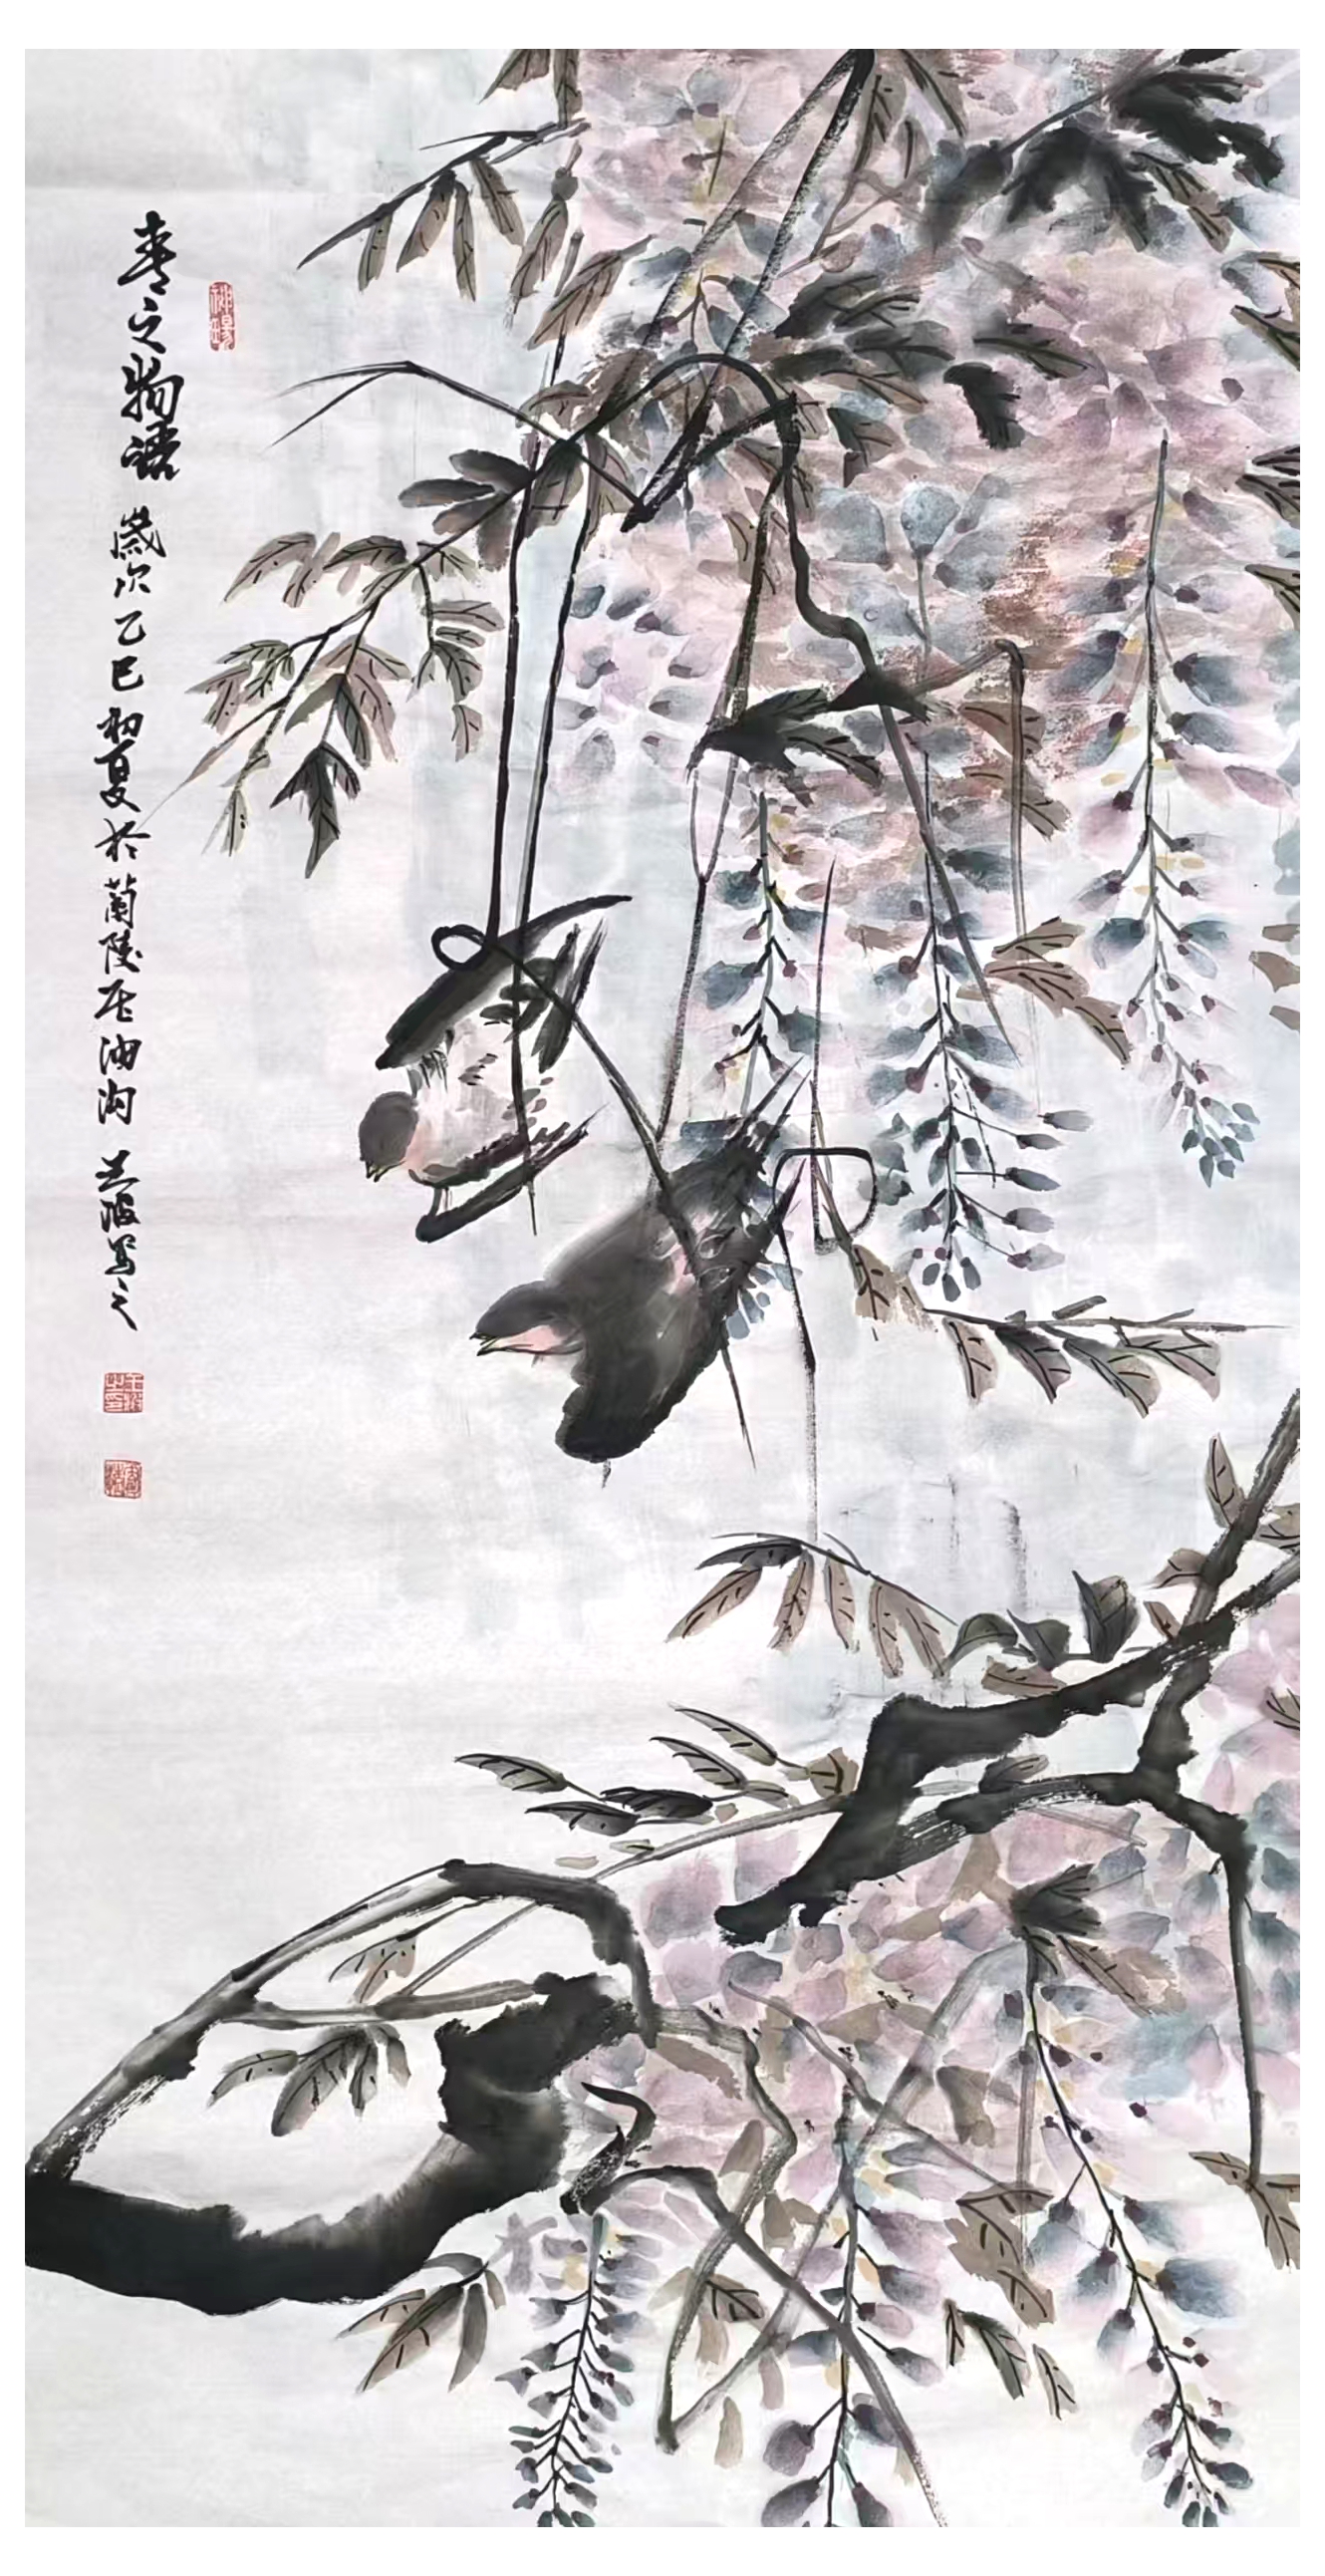 春之物語 歲次乙巳初夏於蘭陵居油沟 波写之